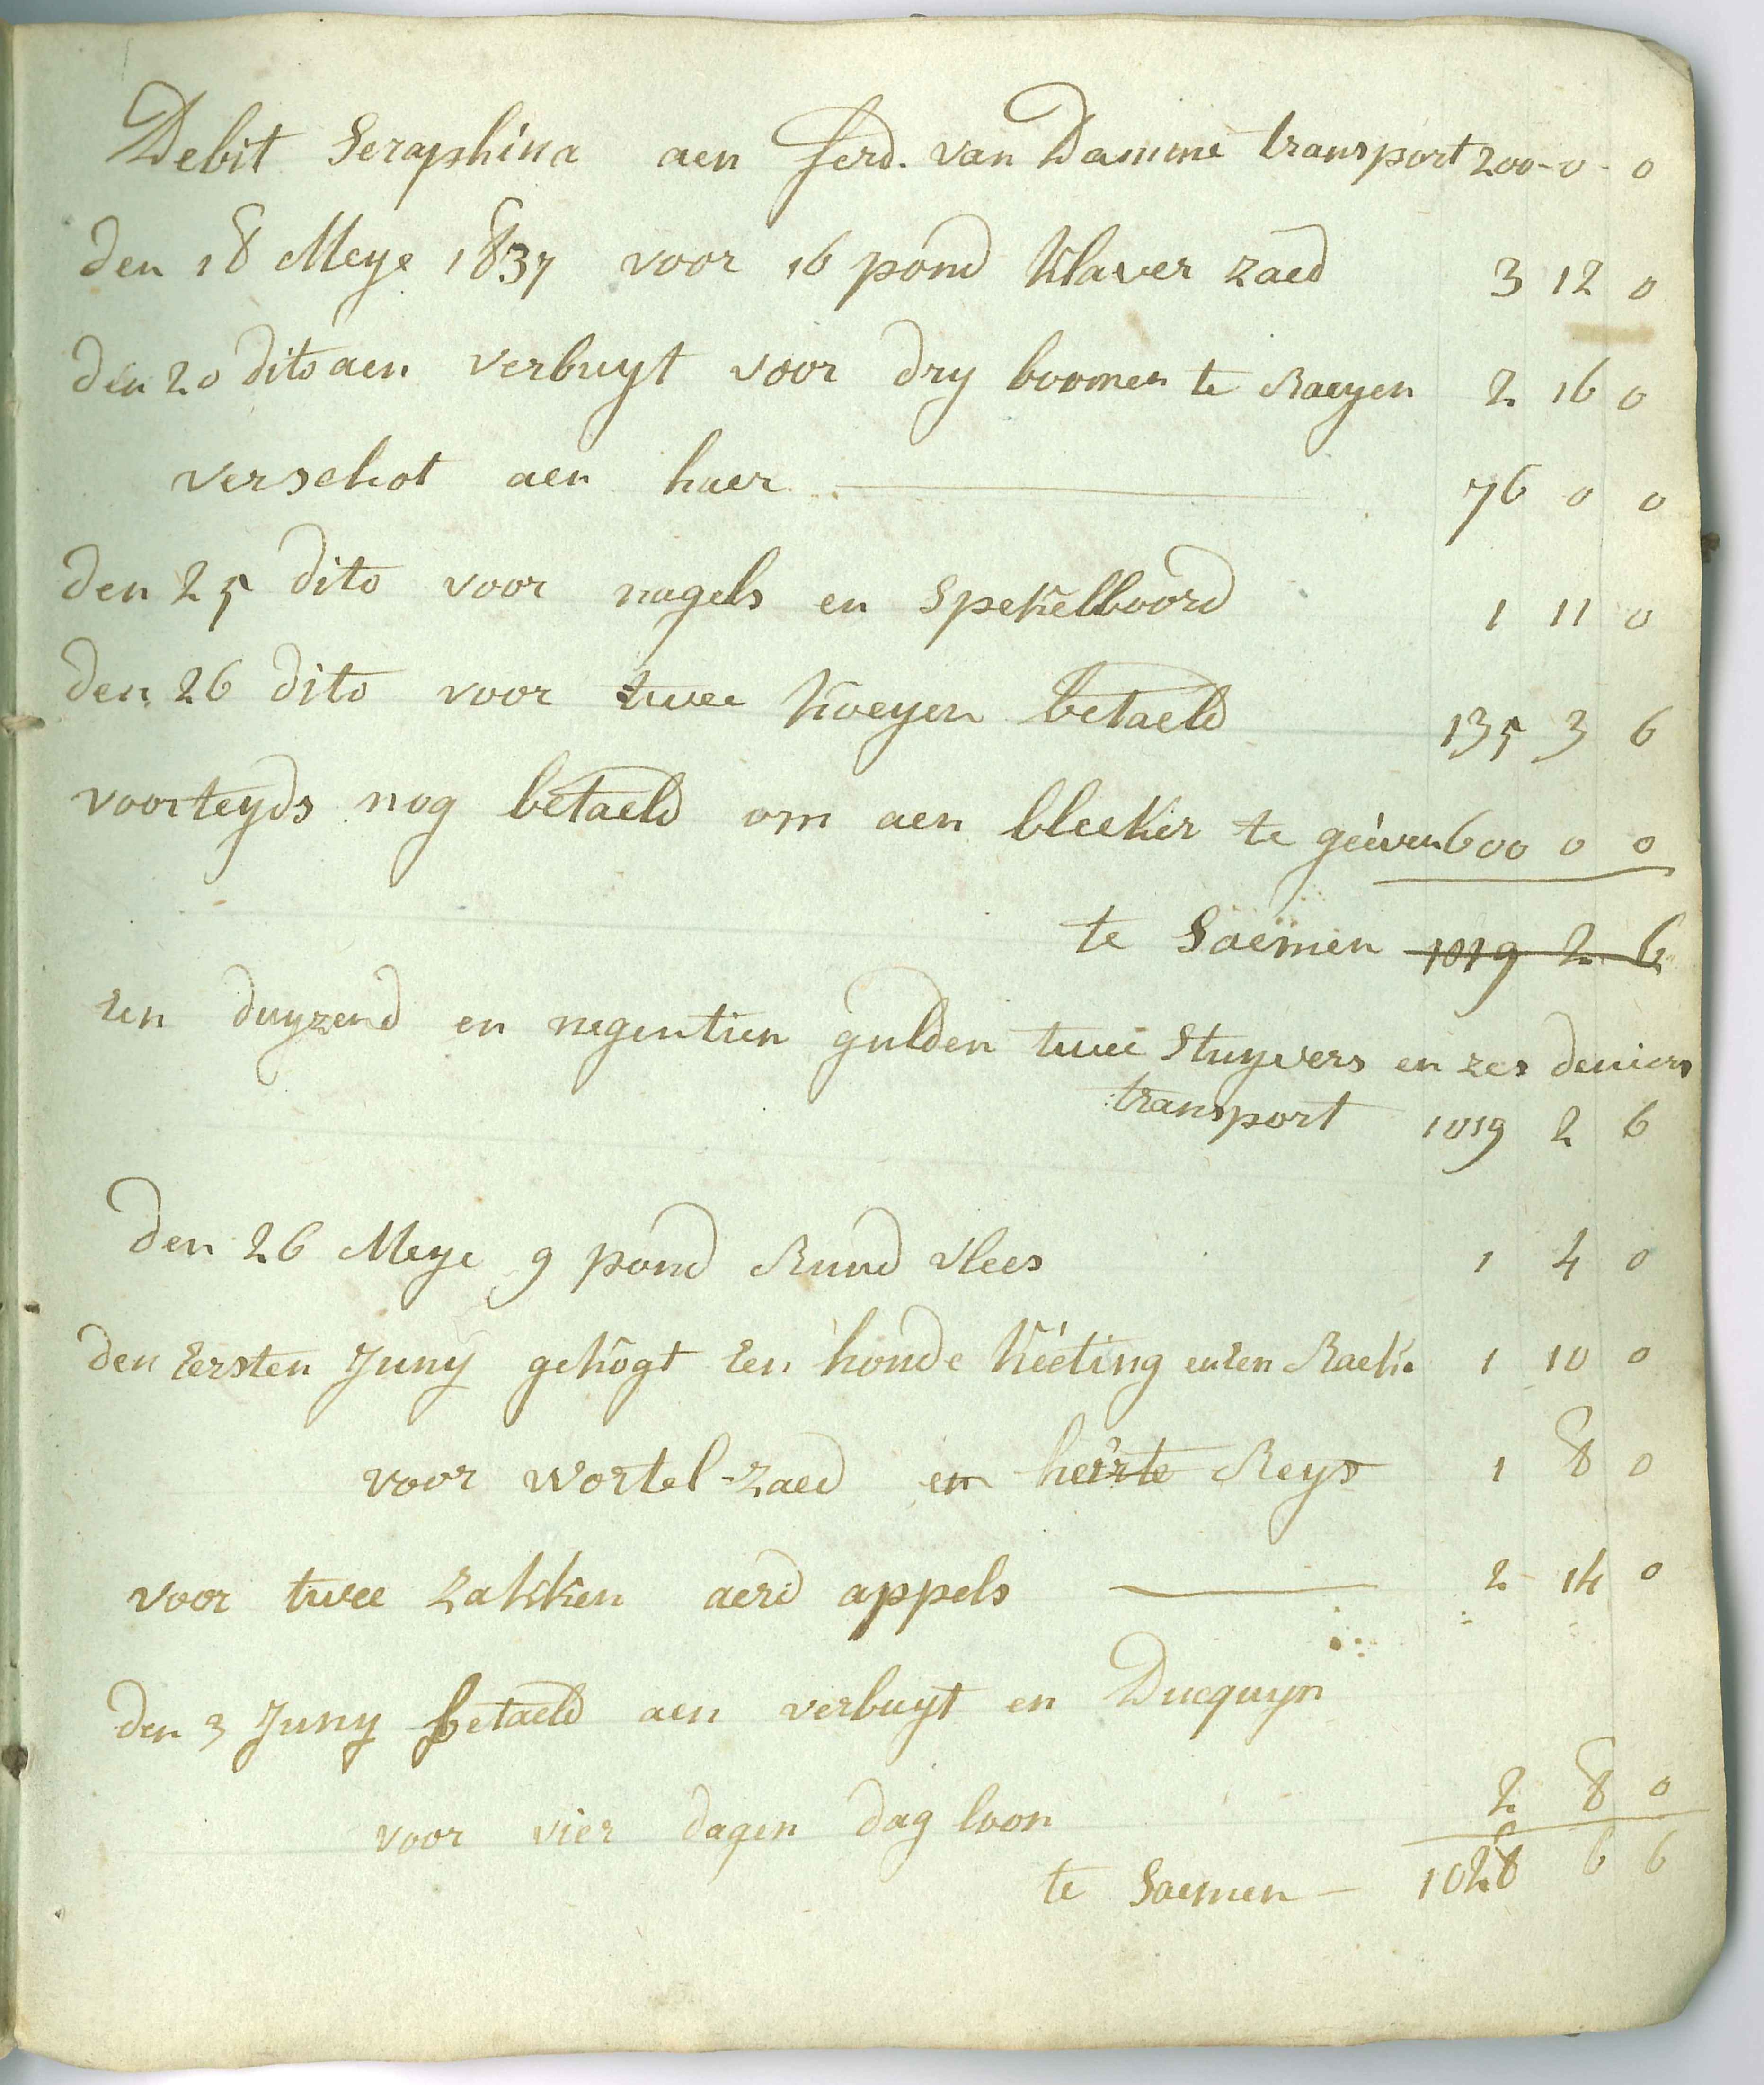 Debit Seraphina aen ferd. van Damme transport 200-0-0
den 18 Meye 1837 voor 16 pond Klaver zaed 3 12 0
den 20 dito aen verbuyt voor dry boomen te Raeyen 2 16 0
verschot aen haer 76 0 0
den 25 dito voor nagels en spekelboord 1 11 0
den 26 dito voor twee koeyen betaeld 135 3 6
voorteyds nog betaeld om aen bleeker te geéven 600 0 0
te Saemen 1019 2 6
een duyzend en negentien gulden twee Stuyvers en zes deniers
transport 1019 2 6
den 26 Meye 9 pond Rund vlees 1 4 0
den eersten Juny gekogt een honde kéeting en een 1 10 0
voor wortel-zaed en Reys 1 8 0
voor twee zakken aerd appels 2 14 0
den 3 Juny betaeld aen verbuyt en Ducquyn
voor vier dagen dag loon 2 8 0
te Saemen - 1028 6 6